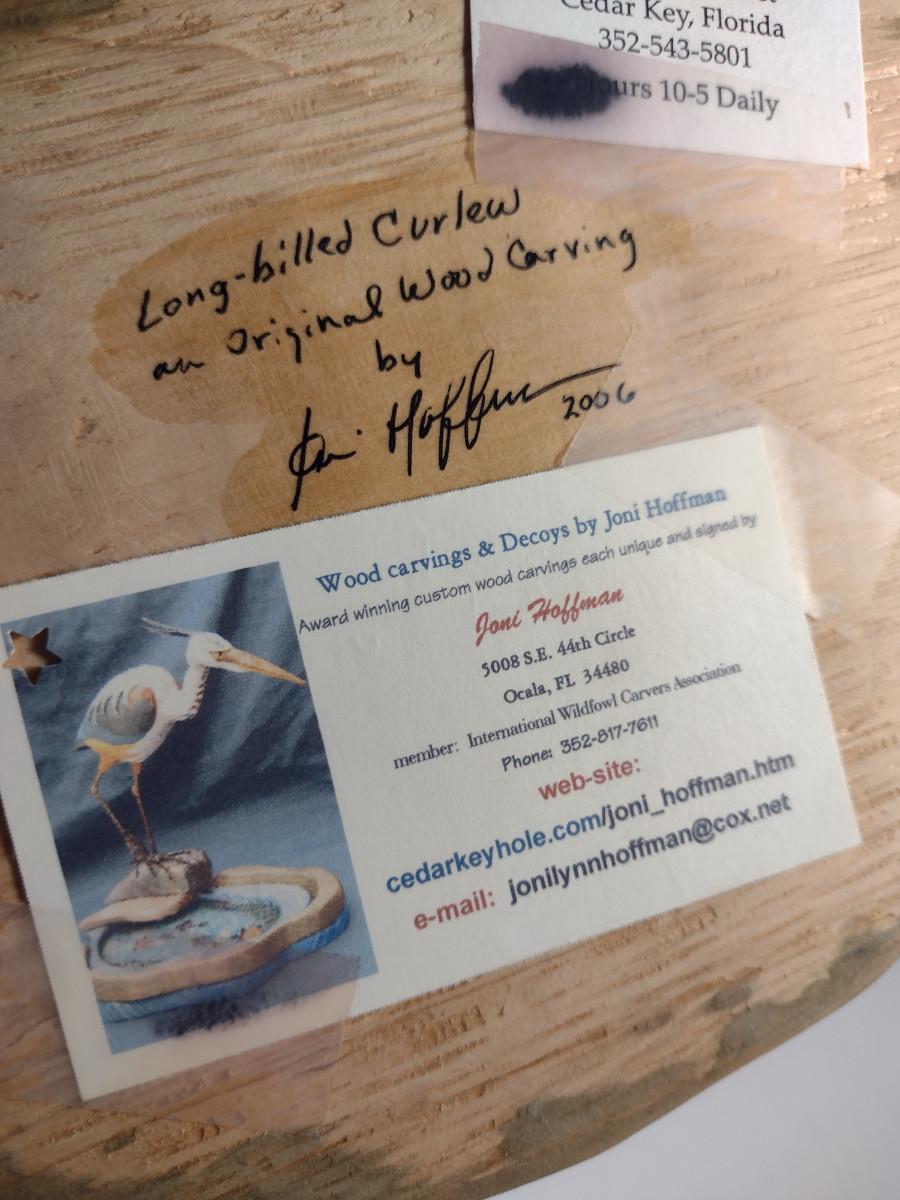 Cedar Key, Florida
352-543-5801
Hours 10-5 Daily
Long-billed Curlew
an Original Wood Carving
by
Joni Hoffman 2006
Wood carvings & Decoys by Joni Hoffman
Award winning custom wood carvings each unique and signed by
Joni Hoffman
5008 S.E. 44th Circle
Ocala, FL 34480
member: International Wildfowl Carvers Association
Phone: 352-817-7611
web-site:
cedarkeyhole.com/joni_hoffman.htm
e-mail: jonilynnhoffman@cox.net